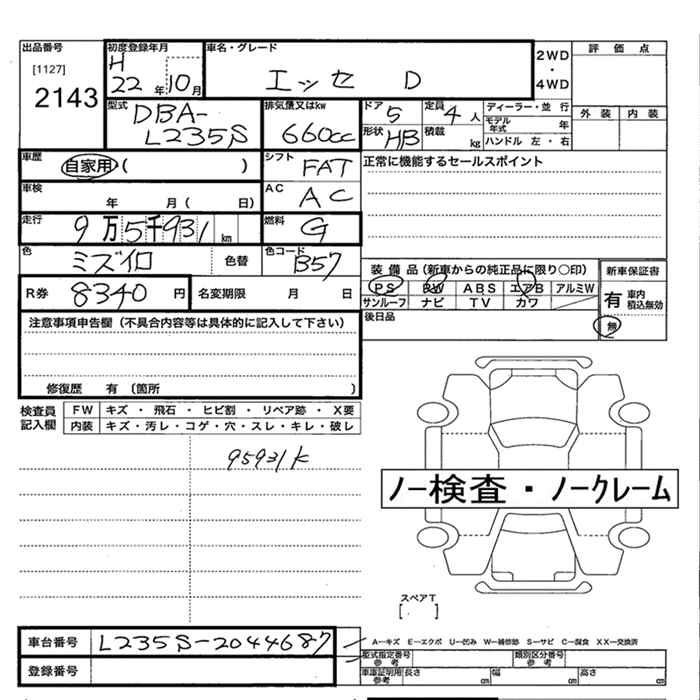 出品番号
[1127]
2143
初度登録年月
H
22 年 10 月
車名・グレード
エッセ D
2WD
・
4WD
評価点
外装 内装
型式
DBA-
L235S
排気量又はkw
660cc
ドア 5
定員 4 人
形状 HB
積載 kg
ディーラー・並行
モデル年式 年
ハンドル 左・右
車歴
自家用 ( )
シフト
FAT
正常に機能するセールスポイント
車検
年 月( 日)
AC
AC
走行
9万5千931 km
燃料
G
色
ミズイロ
色替
色コード
B57
R券 8340 円
名変期限 月 日
装備品(新車からの純正品に限り○印)
PS PW ABS エアB アルミW
サンルーフ ナビ TV カワ
新車保証書
有 車内積込無効
無
後日品
注意事項申告欄(不具合内容等は具体的に記入して下さい)
修復歴 有 (箇所 )
検査員
記入欄
FW キズ・飛石・ヒビ割・リペア跡・X要
内装 キズ・汚レ・コゲ・穴・スレ・キレ・破レ
95931K
ノー検査・ノークレーム
スペアT
[ ]
車台番号 L235S-2044687
登録番号
A−キズ E−エクボ U−凹み W−補修跡 S−サビ C−腐食 XX−交換済
型式指定番号
参考
類別区分番号
参考
車庫証明用
参考
長さ cm 幅 cm 高さ cm